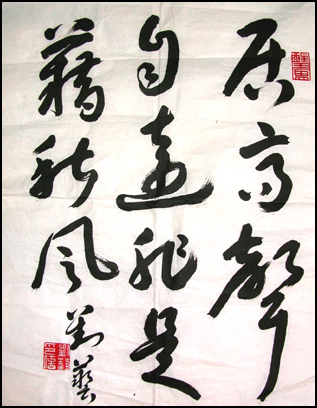 居高聲
自遠非是
藉秋風
劉藝